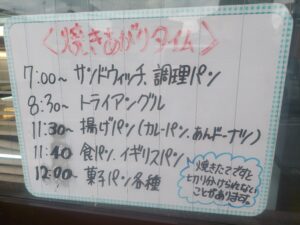 ＜焼きあがりタイム＞
7:00～ サンドウィッチ、調理パン
8:30～ トライアングル
11:30～ 揚げパン（カレーパン、あんドーナツ）
11:40 食パン、イギリスパン
12:00～ 菓子パン各種
焼きたてですと
切り分けられない
ことがあります。